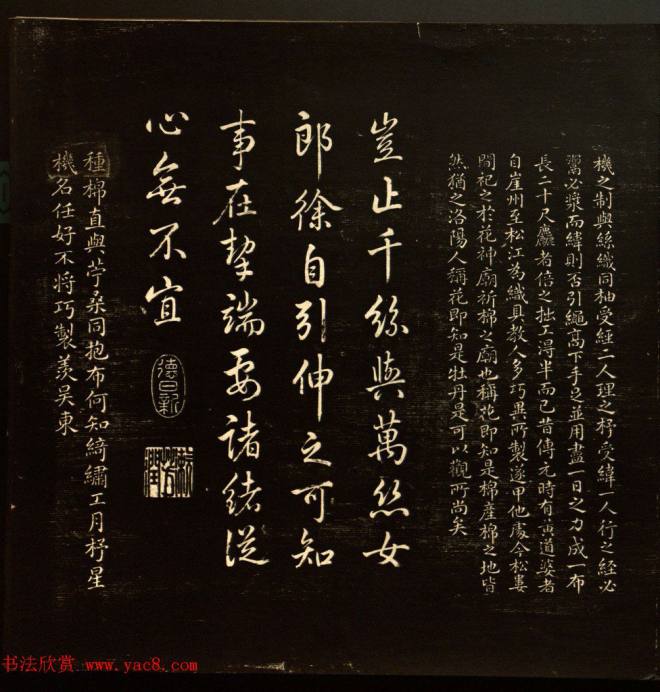 機之制與絲織同柚受經二人理之杼受緯一人行之經必
必漿而緯則否引繩高下手足並用盡一日之力成一布
長二十尺麤者倍之拙工得半而已昔傳元時有黃道婆者
自崖州至松江為織具教人多巧異所製遂甲他處今松婁
間祀之於花神廟祈棉之廟也稱花即知是棉產棉之地皆
然猶之洛陽人稱花即知是牡丹是可以觀所尚矣
豈止千絲與萬絲女
郎徐自引伸之可知
事在挈端要諸緒從
心無不宜
德日新
種棉直與苧桑同抱布何知綺繡工月杼星
機名任好不將巧製羨吳東
书法欣赏 www.yac8.com